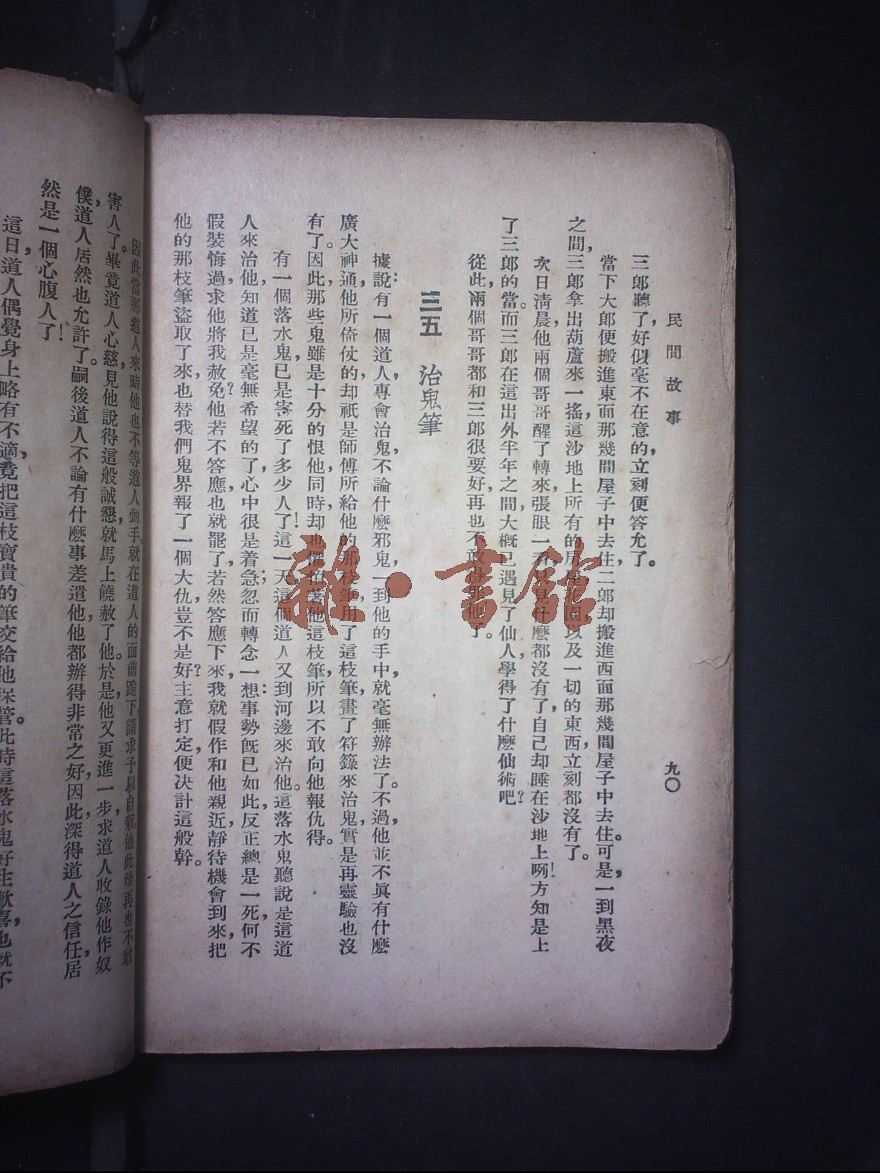 民間故事
九〇
三郎聽了，好似毫不在意的，立刻便答允了。
當下大郎便搬進東面那幾間屋子中去住，二郎却搬進西面那幾間屋子中去住。可是，一到黑夜
之間，三郎拿出葫蘆來一搖，這沙地上所有的房屋園以及一切的東西，立刻都沒有了。
次日清晨，他兩個哥哥醒了轉來，張眼一看，只見什麽都沒有了，自己却睡在沙地上咧！方知是上
了三郎的當。而三郎在這出外半年之間，大概已遇見了仙人，學得了什麽仙術吧？
從此，兩個哥哥都和三郎很要好，再也不敢得罪他了。
三五 治鬼筆
據說：有一個道人，專會治鬼，不論什麽邪鬼，一到他的手中，就毫無辦法了。不過，他並不眞有什麽
廣大神通，他所倚仗的，却祇是師傅所給他的那枝筆，用了這枝筆，畫了符籙來治鬼，實是再靈驗也沒
有了。因此，那些鬼雖是十分的恨他，同時却也懼怕著他這枝筆，所以不敢向他報仇得。
有一個落水鬼，已是害死了多少人了！這一天，這個道人又到河邊來治他。這落水鬼聽說是這道
人來治他，知道已是毫無希望的了，心中很是着急；忽而轉念一想：事勢旣已如此，反正總是一死，何不
假裝悔過，求他將我赦免？他若不答應，也就罷了；若然答應下來，我就假作和他親近，靜待機會到來，把
他的那枝筆盜取了來，也替我們鬼界報了一個大仇，豈不是好？主意打定，便決計這般幹。
因此，當那道人來時，他也不等道人動手，就在道人的面前跪下，請求予以自新，他此後再也不敢
害人了。畢竟道人心慈，見他說得這般誠懇，就馬上饒赦了他。於是，他又更進一步，求道人收錄他作奴
僕，道人居然也允許了。嗣後，道人不論有什麽事差遣他，他都辦得非常之好，因此，深得道人之信任，居
然是一個心腹人了！
這日，道人偶覺身上略有不適，竟把這枝寶貴的筆交給他保管。此時，這落水鬼好生歡喜，也就不
雜·書館